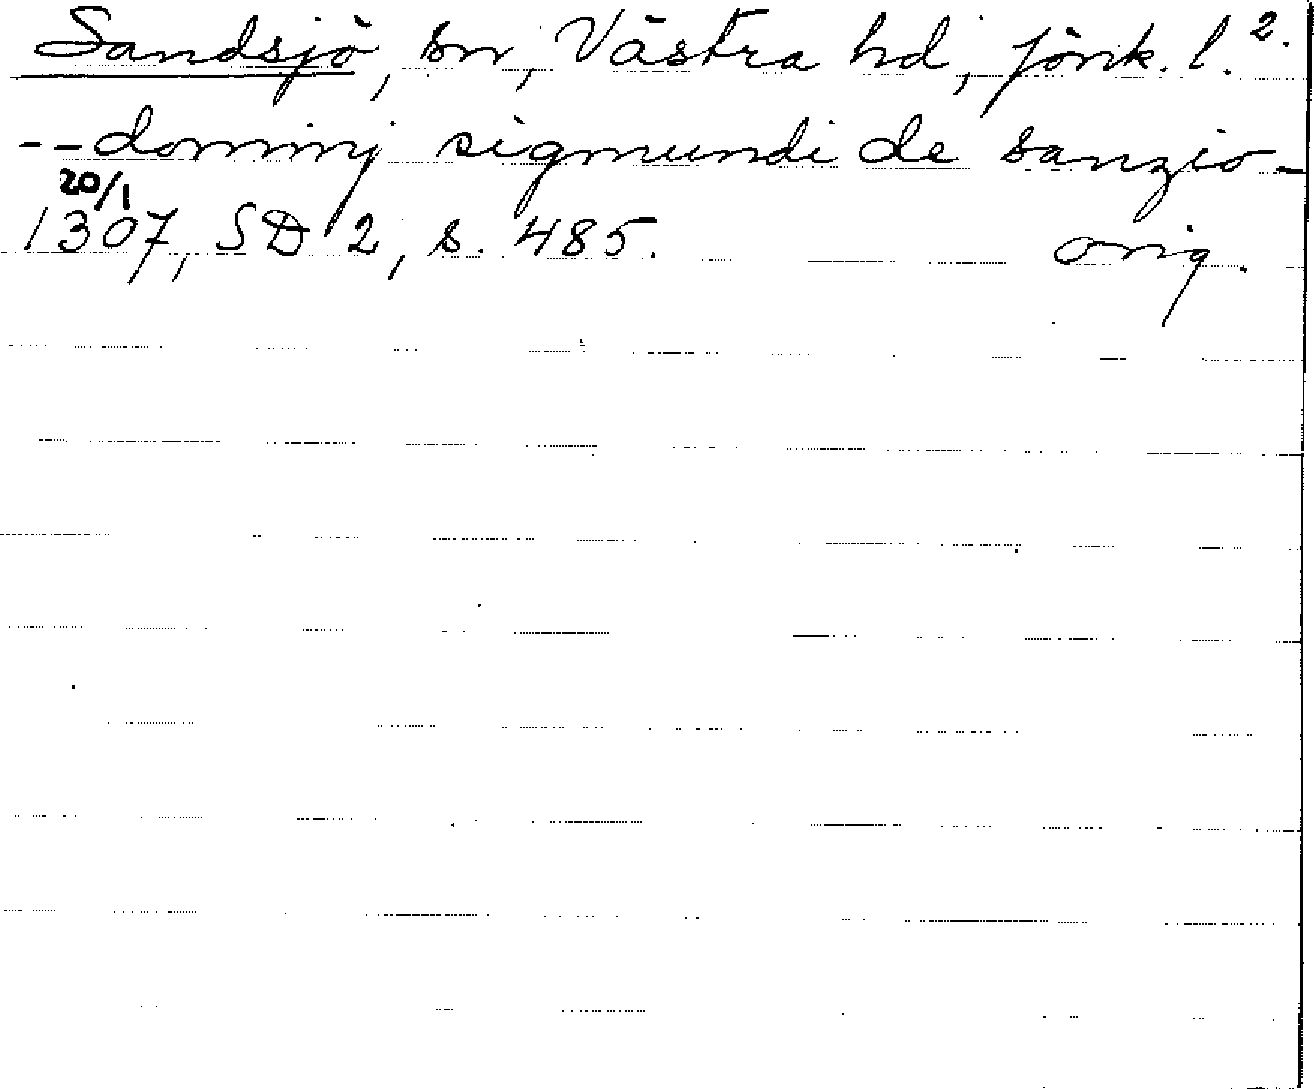 Sandsjö, sn, Västra hd, Jönk. l. 2.
--dominj sigmundi de sanzio-
20/1
1307, SD 2, s. 485. orig.